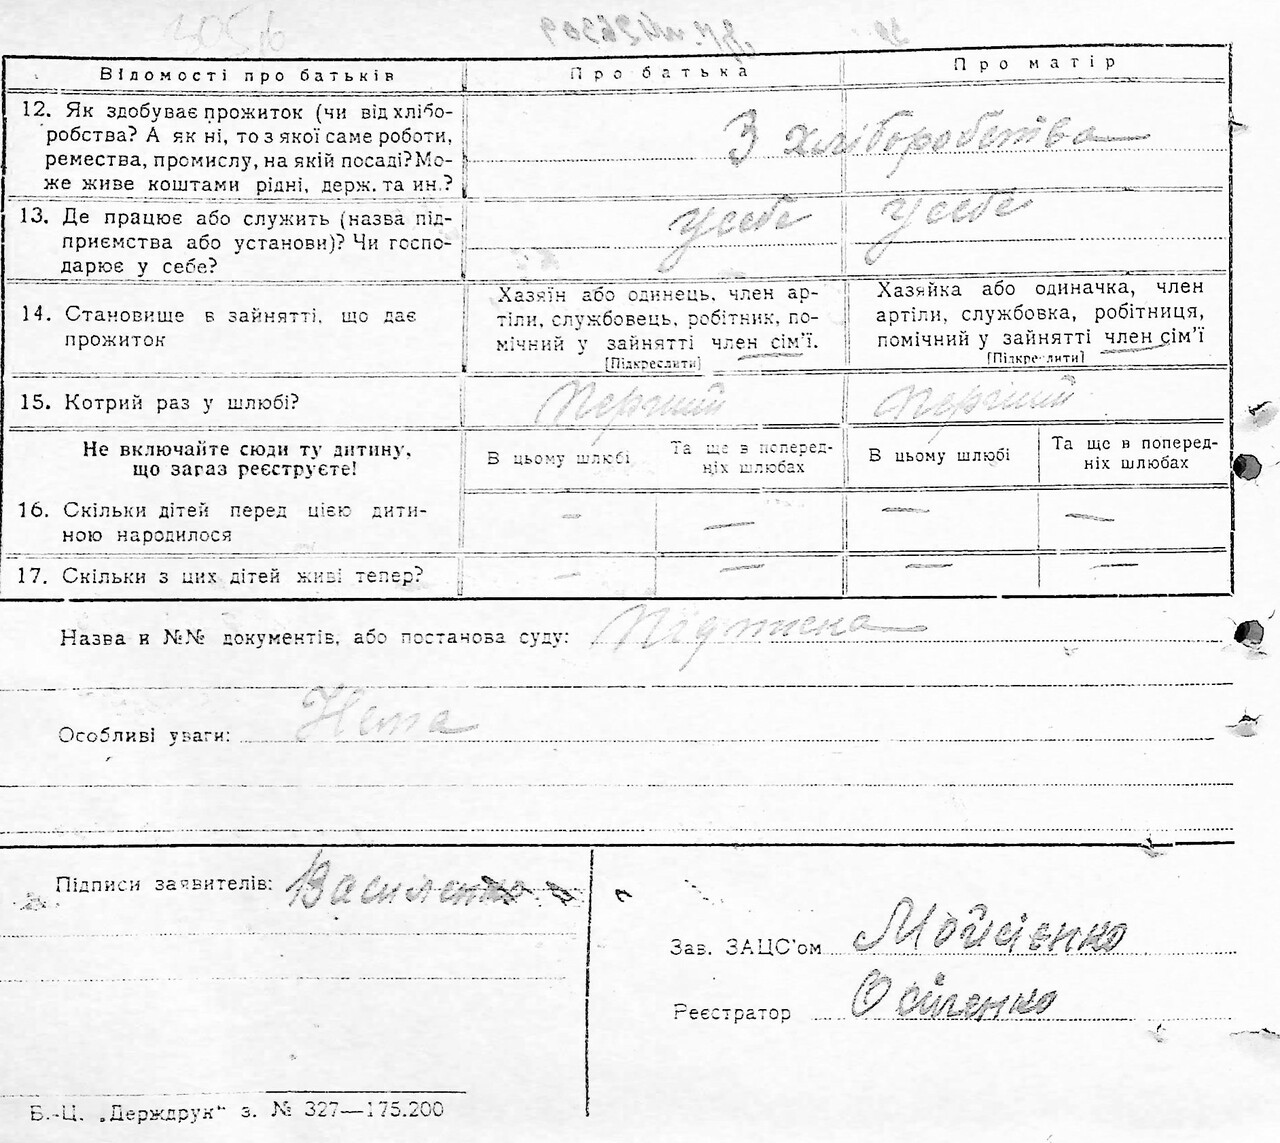 305/6
Відомості про батьків
Про батька
Про матір
12. Як здобуває прожиток (чи від хлібо-
робства? А як ні, то з якої саме роботи,
ремества, промислу, на якій посаді? Мо-
же живе коштами рідні, держ. та ин.?
З хліборобства
13. Де працює або служить (назва під-
приємства або установи)? Чи госпо-
дарює у себе?
У себе
У себе
14. Становище в зайнятті, що дає
прожиток
Хазяїн або одинець, член ар-
тіли, службовець, робітник, по-
мічний у зайнятті член сім'ї.
[Підкреслити]
Хазяйка або одиначка, член
артіли, службовка, робітниця,
помічний у зайнятті член сім'ї
[Підкреслити]
15. Котрий раз у шлюбі?
Перший
Перший
Не включайте сюди ту дитину,
що загаз реєструєте!
В цьому шлюбі
Та ще в поперед-
ніх шлюбах
В цьому шлюбі
Та ще в поперед-
ніх шлюбах
16. Скільки дітей перед цією дити-
ною народилося
— — — —
17. Скільки з цих дітей живі тепер?
— — — —
Назва и №№ документів, або постанова суду:
Особливі уваги: Нема
Підписи заявителів: Василенко
Зав. ЗАЦС'ом Мойсієнко
Реєстратор Осіпенко
Б.-Ц. „Держдрук" з. № 327—175.200